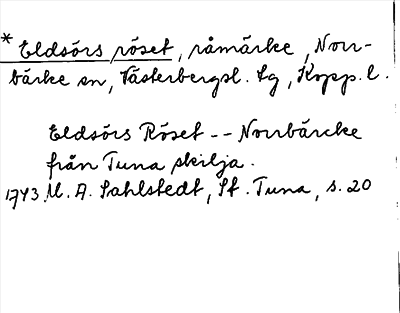 * Eldsörs röset, råmärke, Norr-
bärke sn, Västerbergsl. tg, Kopp. l.
Eldsörs Röset -- Norrbärcke
från Tuna skilja.
1743. M. A. Sahlstedt, St. Tuna, s. 20